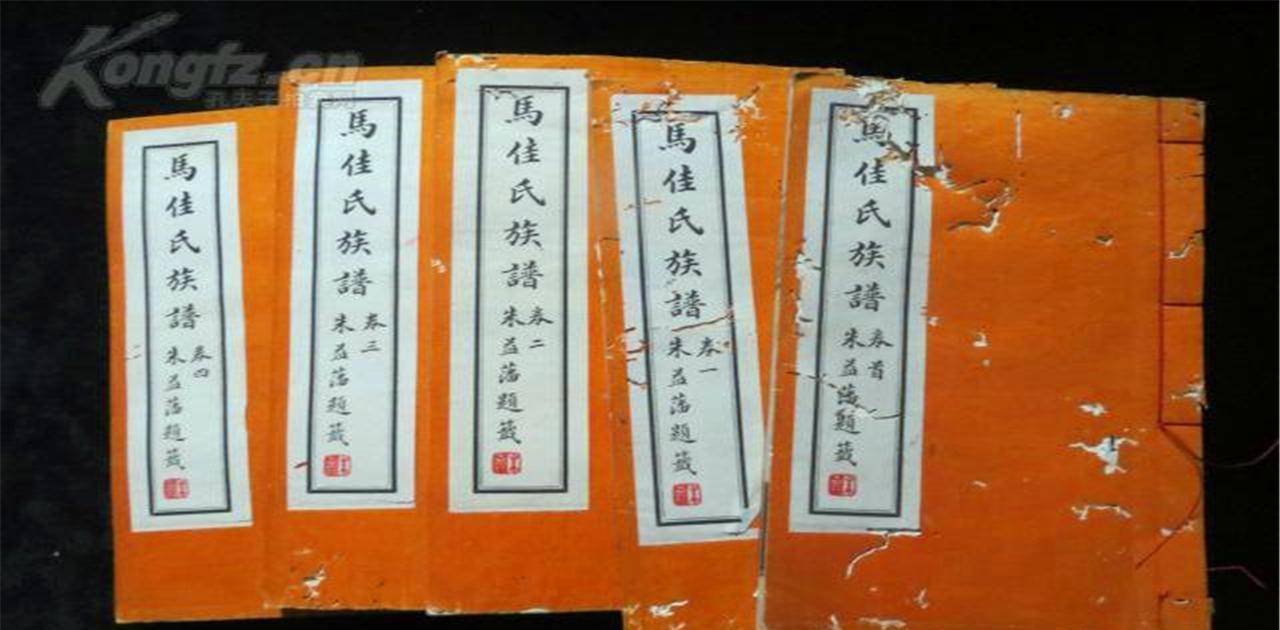 Kongfz.cn
馬佳氏族譜
卷首
朱益藩題籤
馬佳氏族譜
卷一
朱益藩題籤
馬佳氏族譜
卷二
朱益藩題籤
馬佳氏族譜
卷三
朱益藩題籤
馬佳氏族譜
卷四
朱益藩題籤